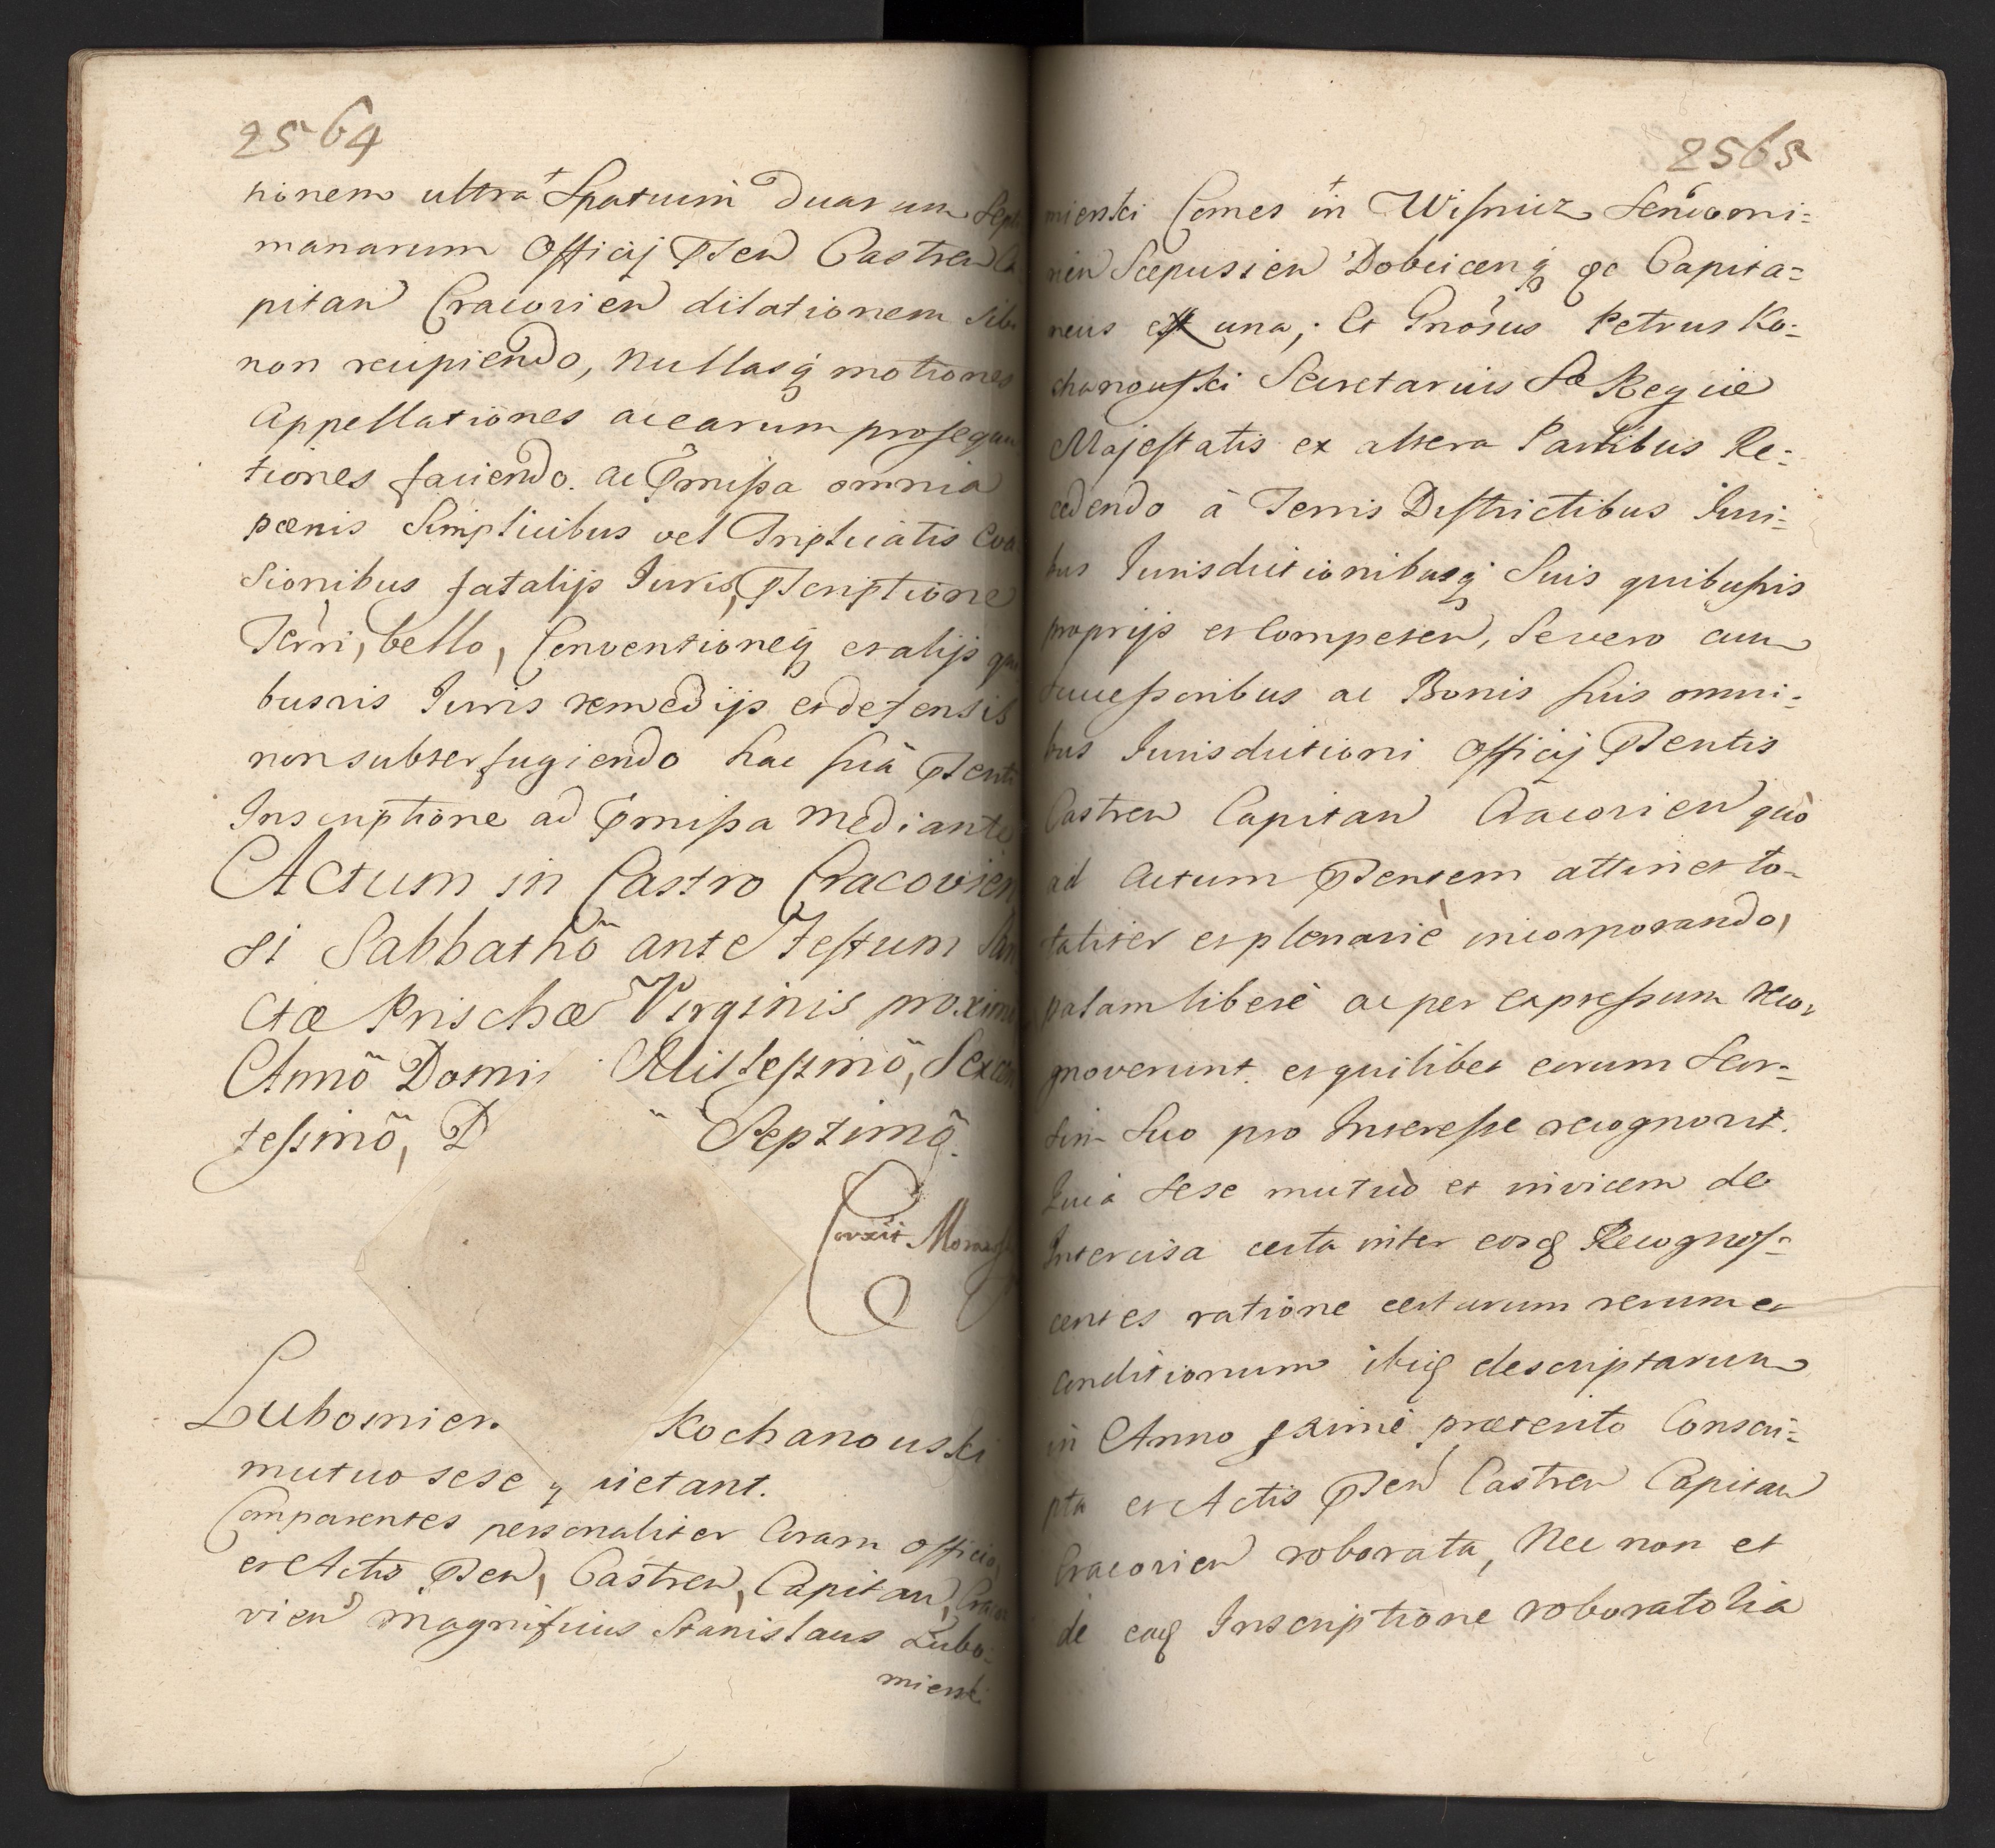 2564
tionem ultra Spatium Duarum Sept
manarum Officij Pnten Castren Ca
pitan Cracovien dilationem sibi
non recipiendo, nullasq motiones
Appellationes ac earum prosequu
tiones faciendo. ac Pmissa omnia
pœnis Simplicibus vel Triplicatis Eva
sionibus fatalijs Juris, Pscriptione
Terri, bello, Conventioneq et alijs qui
busvis Juris remedijs et defensis
non subterfugiendo hac suâ Pnti
Inscriptione ad Pmissa mediante
Actum in Castro Cracovien
si Sabbathõ ante Festum San
ctæ Prischæ Virginis proximo
Annõ Domi Millessimõ, Sexcen
tessimõ, D Septimõ.
Corxit Moraws
Lubomier. Kochanouski
mutuo sese q uietant.
Comparentes personaliter Coram Officio,
et Actis Pnten, Castren, Capitan, Craco
vien Magnificus Stanislaus Lubo-
mierski
2565
mierski Comes in Wisnicz Sendomi=
rien Scepusien Dobciceng &c Capita=
neus ex una; Et Gnosus Petrus Ko=
chanouski Secretarius Sæ Regiæ
Majestatis ex altera Partibus Re=
cedendo à Terris Districtibus Juri=
bus Jurisdictionibusq Suis quibusvis
proprijs et Competen, Se vero cum
Successoribus ac Bonis suis omni=
bus Jurisdictioni Officij Pntentis
Castren Capitan Cracovien quò
ad Actum Pntentem attinet to=
taliter et plenariè incorporando,
palam liberè ac per expressum reco,
gnoverunt. et quilibet eorum Seor=
sim Suo pro Interesse recognovit.
Quia Sese mutuò et invicem de
Intercisa certa inter eosq Recognos=
centes ratione certarum rerum et
Conditionum ibiq descriptarum
in Anno pximè præterito Conscri=
pta et Actis Pnten Castren Capitan
Cracovien roborata, Nec non et
de eaq Inscriptione roboratoria